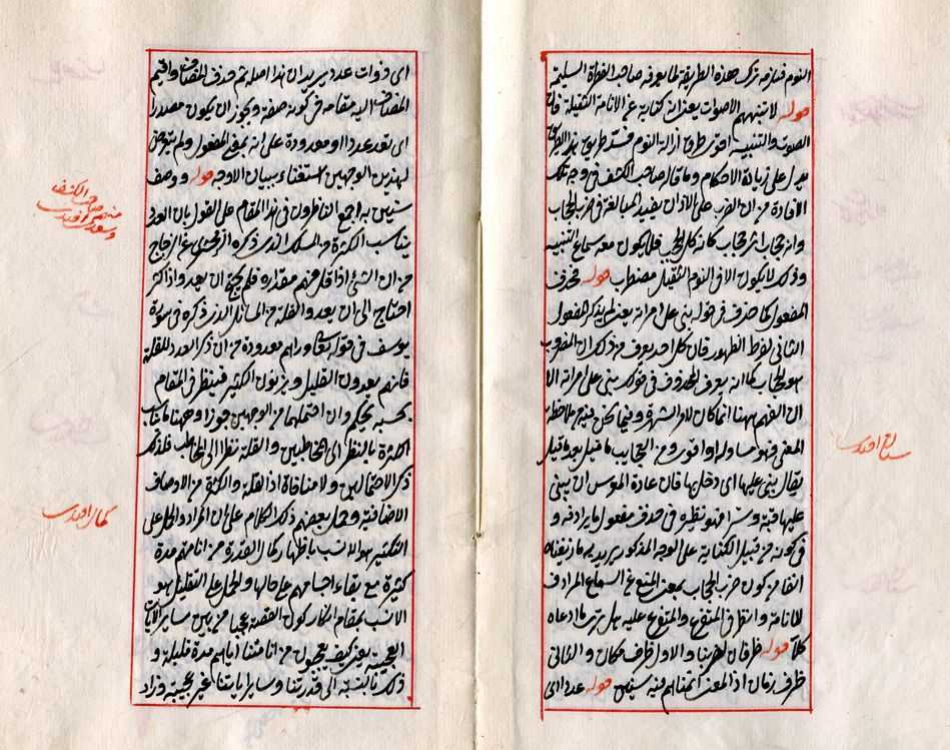 النوم فيلزمه ترك هذه الطريقة لما يعرفه صاحب الفطرة السليمة
قوله لا تنبههم الاصوات يعنى انه كناية عن الانامة الثقيلة فان
الصوت والتنبيه اقوى طرق ازالة النوم فسد طريق
يدل على زيادة الاحكام وما قاله صاحب الكشف فى وجه تلك
الافادة من ان الضرب على الاذان يفيد المبالغة فى ضرب الحجاب
حجاب كانه كل الحجب فلا يكون معه سماع التنبيه
وذلك لا يكون الا فى النوم الثقيل مضطرب قوله محذف
المفعول كما حذف فى قوله بنى على امرأته يعنى لم يذكر المفعول
الثانى لفرط الظهور فان كل احد يعرف من ذلك ان المضروب
هو الحجاب كما انه يعرف المحذوف فى قولك بنى على امرأته الا
ان الفهم ههنا انما كان للشهرة وفيما نحن فيه بملاحظة
المعنى فهو مساو له او اقوى ومن العجايب ما قيل بعد ما قيل
يقال بنى عليها اى دخل بها فان عادة العروس ان يبنى
عليها قبة فهو نظيره فى حذف مفعول ما يرادفه و
فى كونه من قبيل الكناية على الوجه المذكور يريد به ما زيفناه
انفا من كون ضرب الحجاب بمعنى المنع عن السماع المرادف
للانامة وانظر فى المتفرع والمتفرع عليه هل ترى ما ادعاه
كلا قوله ظرفان لضربنا والاول ظرف مكان والثانى
ظرف زمان اذ المعنى انمناهم فيه سنين قوله عددا اى
سنان افندى
اى ذوات عدد يريد ان هذا اصله ثم حذف المضاف واقيم
المضاف اليه مقامه فى كونه صفة ويجوز ان يكون مصدرا
اى تعد عددا او معدودة على انه بمعنى المفعول ولم يتعرض
لهذين الوجهين استغناء ببيان الاوجه قوله ووصف
سنين به اجمع الناظرون فى هذا المقام على القول بان العدد
يناسب الكثرة من المسلك الذى ذكره الزمخشرى عن الزجاج
من ان الشئ اذا قل فهم مقداره فلم يحتج ان يعد واذا كثر
احتاج الى ان يعد والقلة من المسائل الذى ذكره فى سورة
يوسف فى قوله تعالى دراهم معدودة من ان ذكر العدد للقلة
فانهم يعدون القليل ويزنون الكثير فينظر فى المقام
بحسبه يحكم وان احتملهما من الوجهين جوزا وههنا مناسب
الكثرة بالنظر الى المخاطبين والقلة نظرا الى المخاطب فلذلك
ذكر الاحتمالين ولا منافاة اذ القلة والكثرة من الاوصاف
الاضافية وحمل بعضهم ذلك الكلام على ان المراد والحمل على
التكثير هو الانسب باظهار كمال القدرة من انامتهم مدة
كثيرة مع بقاء اجسامهم على حالها والحمل على التقليل هو
الانسب بمقام انكار كون القصة عجبا من بين ساير الايات
العجيبة يعنى كيف يعجبون من انامتنا اياهم مدة قليلة و
ذلك بالنسبة الى قدرتنا وساير اياتنا غير عجيبة وزاد
منهم صاحب الكشف
وسعدى افندى
كمال افندى